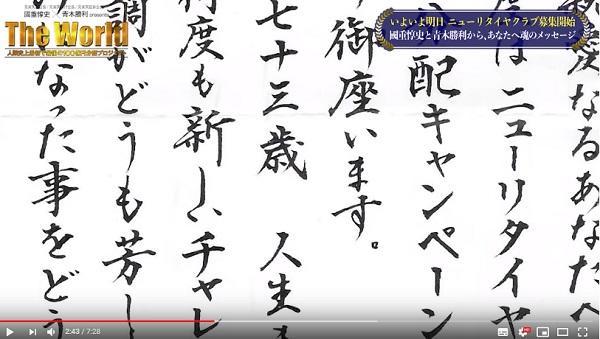 國重惇史 × 青木勝利 presents
The World
人類史上最初で最後の100億円分配プロジェクト
いよいよ明日 ニューリタイヤクラブ募集開始
國重惇史と青木勝利から、あなたへ魂のメッセージ
愛なるあなたへ
はニューリタイヤ
配キャンペーン
御座います。
七十三歳 人生
何度も新しいチャレ
調がどうも芳し
なった事をどう
2:43 / 7:28